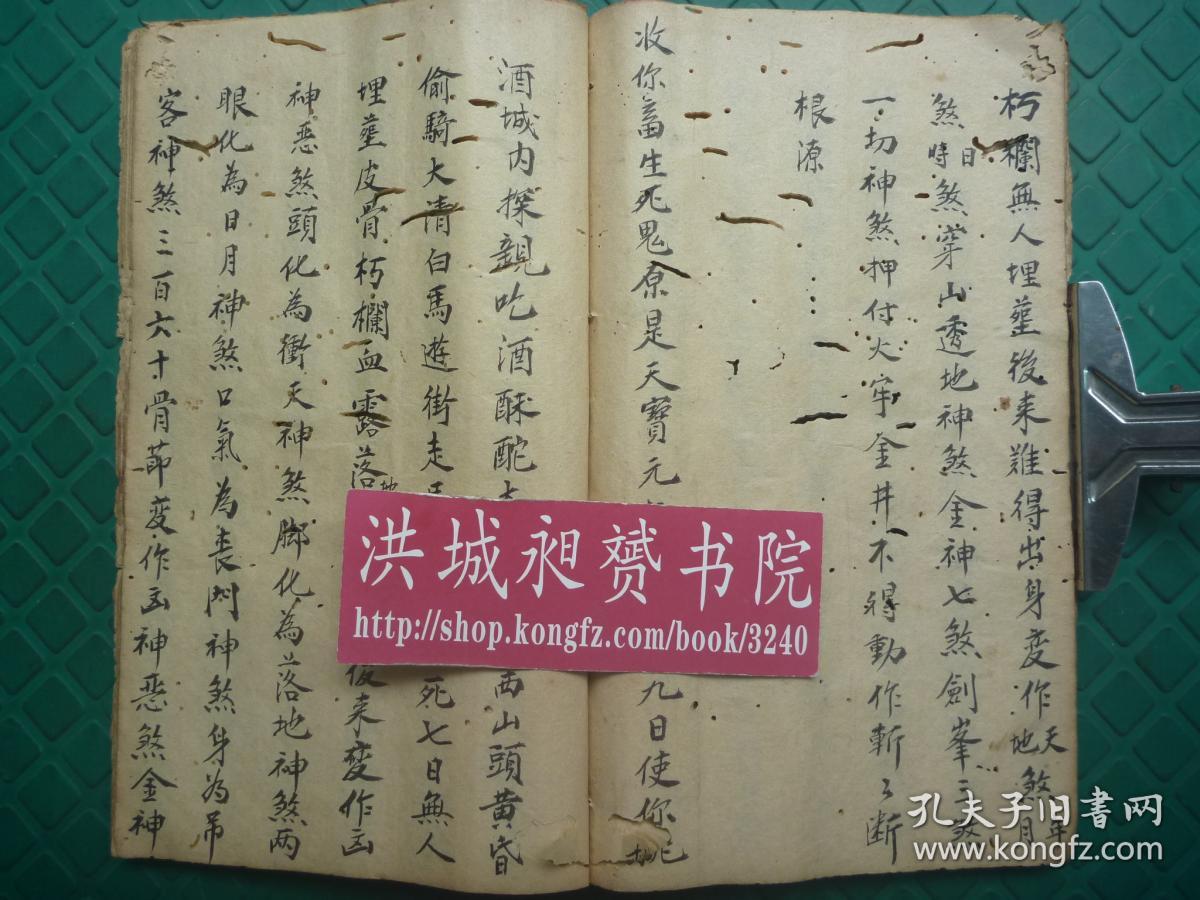 朽欄無人埋塟後来難得出身变作天地煞年月
煞日時煞穿山透地神煞金神七煞劍峯三煞
一切神煞押付火牢金井不得動作斬々断
根源
收你畜生死鬼原是天寶元
九日使你
酒城内探親吃酒酥酡
西山頭黄昏
偷騎大清白馬遊街走
死七日無人
埋塟皮骨朽欄血露落地
後来変作凶
神恶煞頭化為衝天神煞脚化為落地神煞两
眼化為日月神煞口氣為喪門神煞身為吊
客神煞三百六十骨節变作凶神恶煞金神
洪城昶赟书院
http://shop.kongfz.com/book/3240
孔夫子旧书网
www.kongfz.com